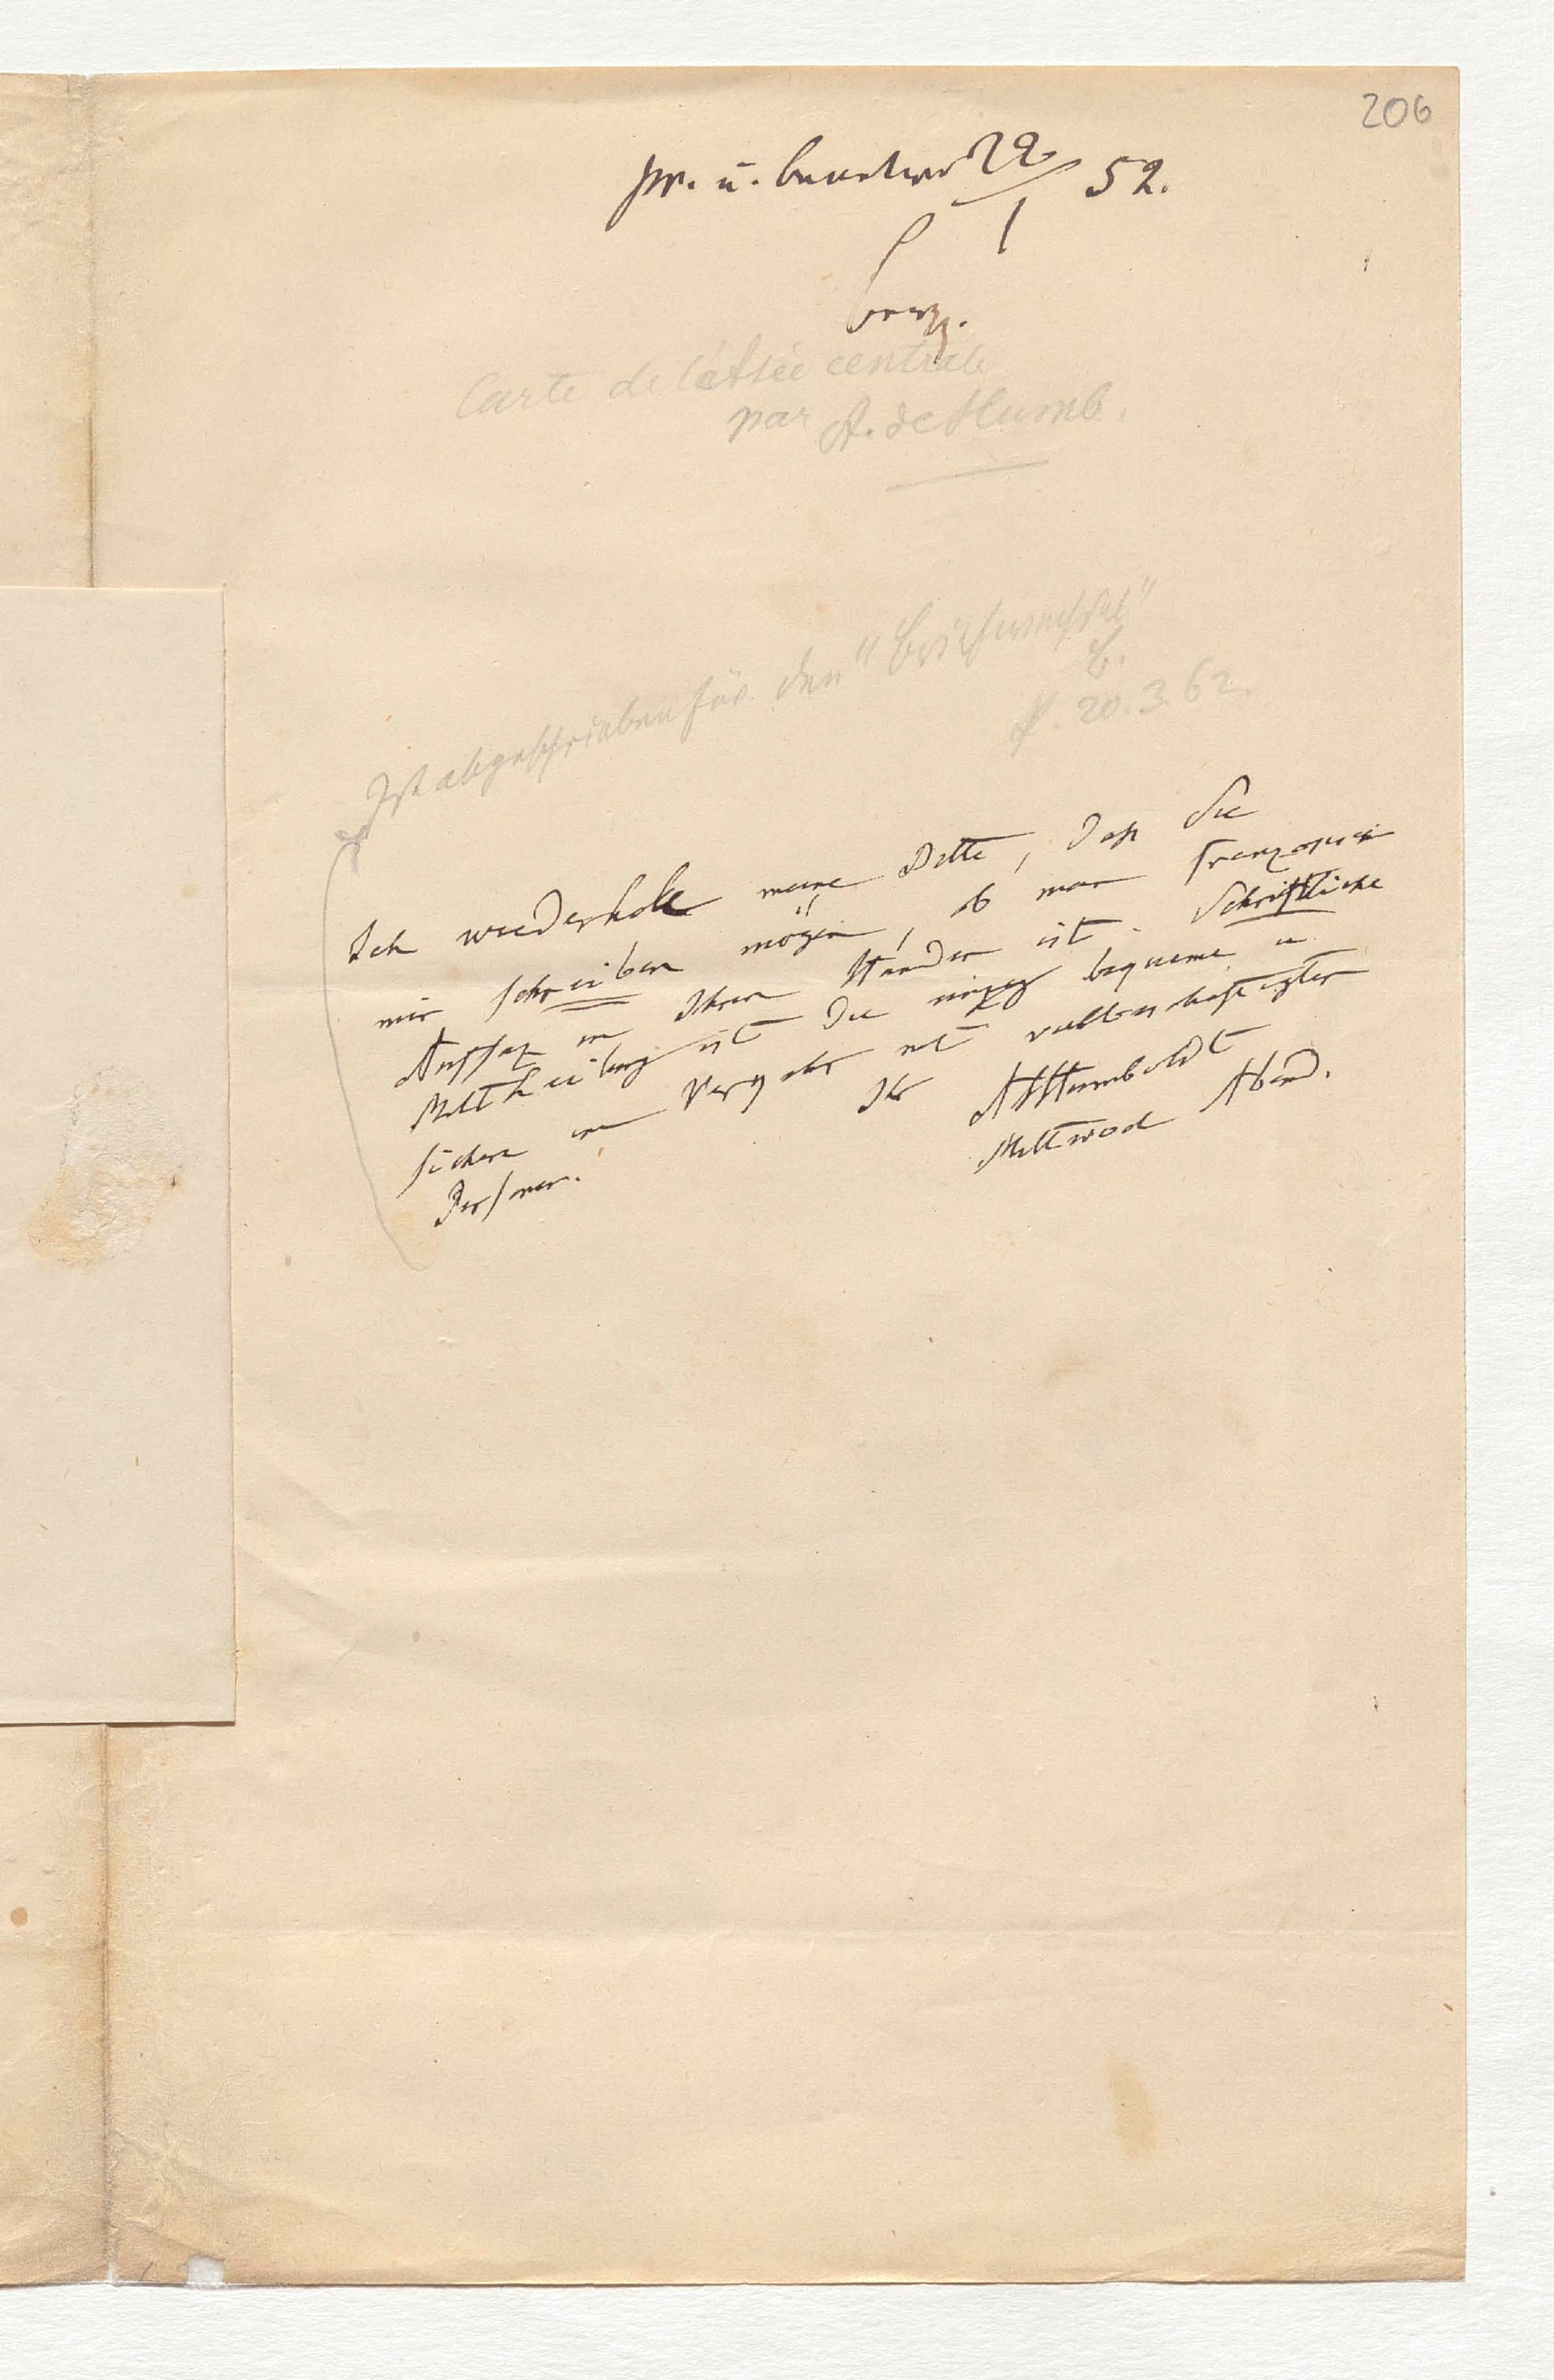 206
pr. u. beantw 22/1 52.
Brgh.
Carte de l'Asie centrale
par A. de Humb.
Ist abgeschrieben für den "Briefwechsel"
B. 20.3.62.
Ich wiederhole meine Bitte, daß Sie
mir schreiben mögen, ob mein französischer
Aufsaz in Ihren Händen ist. Schriftliche
Mittheilung ist die einzig bequeme u
sichere im Verkehr mit vielbeschäftigten
Personen.
Ihr
AvHumboldt
Mittwoch Abend.